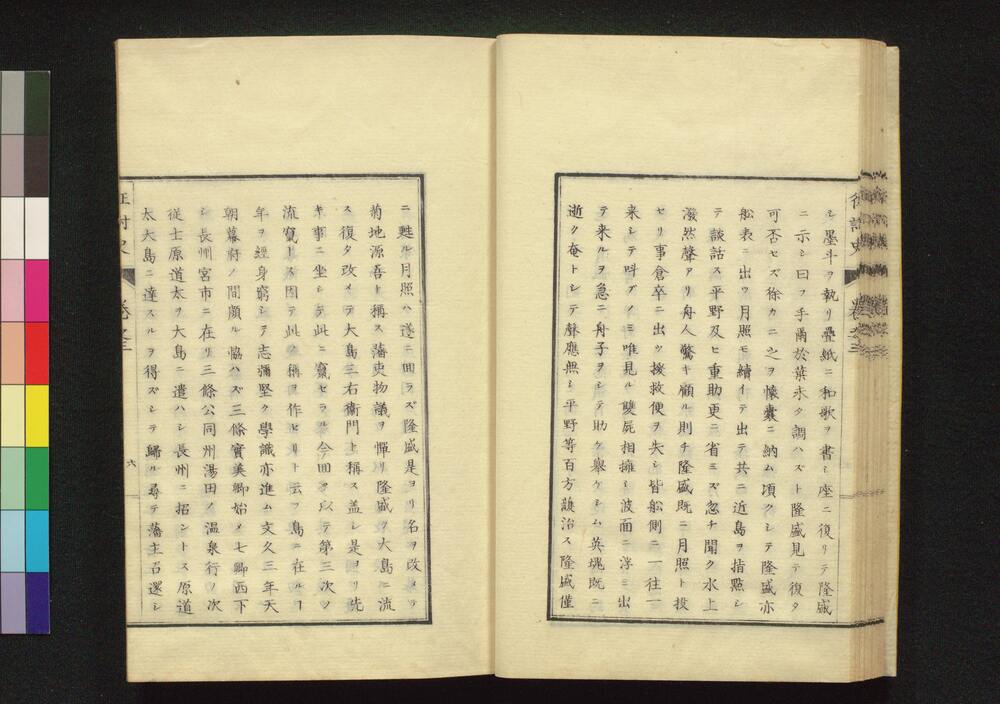 シ墨斗ヲ執リ疊紙ニ和歌ヲ書シ座ニ復リテ隆盛
ニ示シ曰フ手爾於葉未タ調ハズト隆盛見テ復タ
可否セズ徐カニ之ヲ懷囊ニ納ム頃クシテ隆盛亦
船表ニ出ツ月照モ續イテ出テ共ニ近島ヲ指點シ
テ談話ス平野及ヒ重助更ニ省ミズ忽チ聞ク水上
潑然聲アリ舟人驚キ顧ル則チ隆盛既ニ月照ト投
セリ事倉卒ニ出ツ援救便ヲ失シ皆船側ニ一往一
来シテ呌ブノミ唯見ル雙屍相擁シ波面ニ浮ミ出
テ来ルヲ急ニ舟子ヲシテ助ケ舉ケシム英塊既ニ
逝ク奄トシテ聲應無シ平野等百方護治ス隆盛僅
征討史
卷之三
ニ甦ル月照ハ遂ニ回ラズ隆盛是ヨリ名ヲ改メテ
菊地源吾ト稱ス藩吏物議ヲ憚リ隆盛ヲ大島ニ流
ス復タ改メテ大島三右衞門ト稱ス盖シ是ヨリ先
キ事ニ坐シテ此ニ竄セラル今回ヲ以テ第三次ノ
流竄トス因テ此ノ稱ヲ作セリト云フ島ニ在ルヿ
年ヲ經身窮シテ志彌堅ク學識亦進ム文久三年天
朝幕府ノ間頗ル恊ハズ三條實美卿始メ七卿西下
シ長州宮市ニ在リ三條公同州湯田ノ温泉行ノ次
従士原道太ヲ大島ニ遣ハシ長州ニ招ントス原道
太大島ニ達スルヲ得ズシテ歸ル尋テ藩主召還シ
征討史
卷之三
六